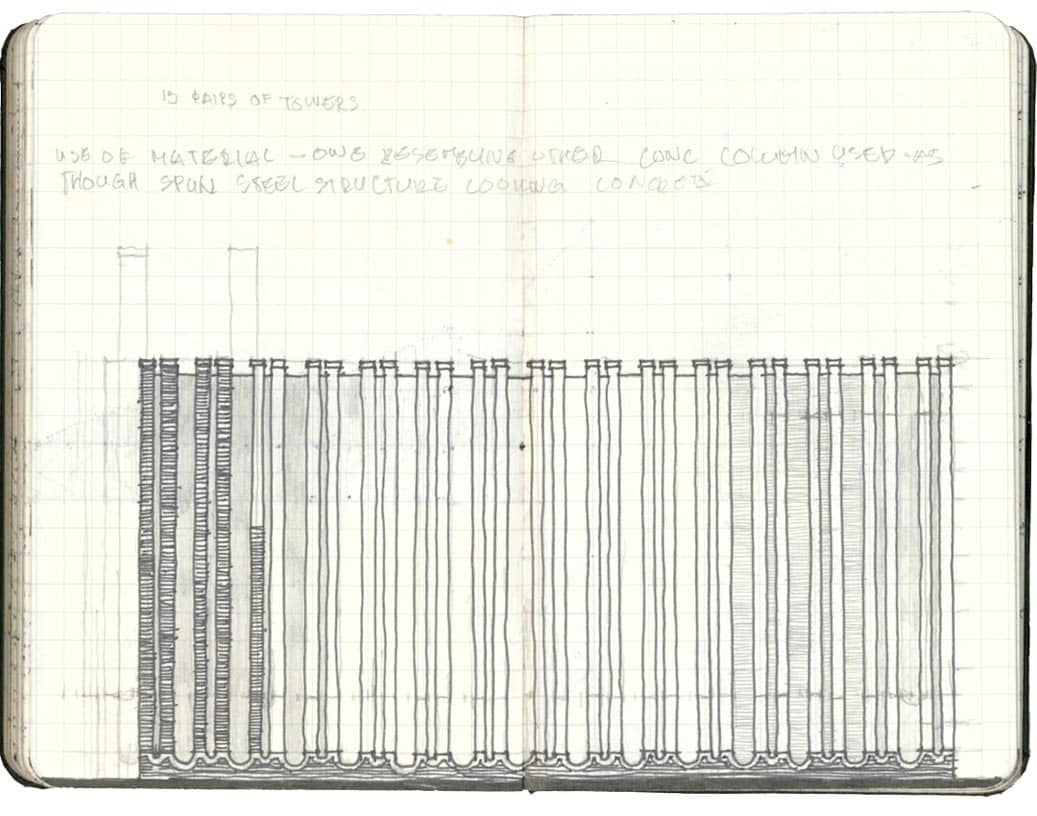 15 PAIRS OF TOWERS
USE OF MATERIAL - ONE RESEMBLING OTHER CONC COLUMN USED AS
THOUGH SPUN STEEL STRUCTURE LOOKING CONCRETE